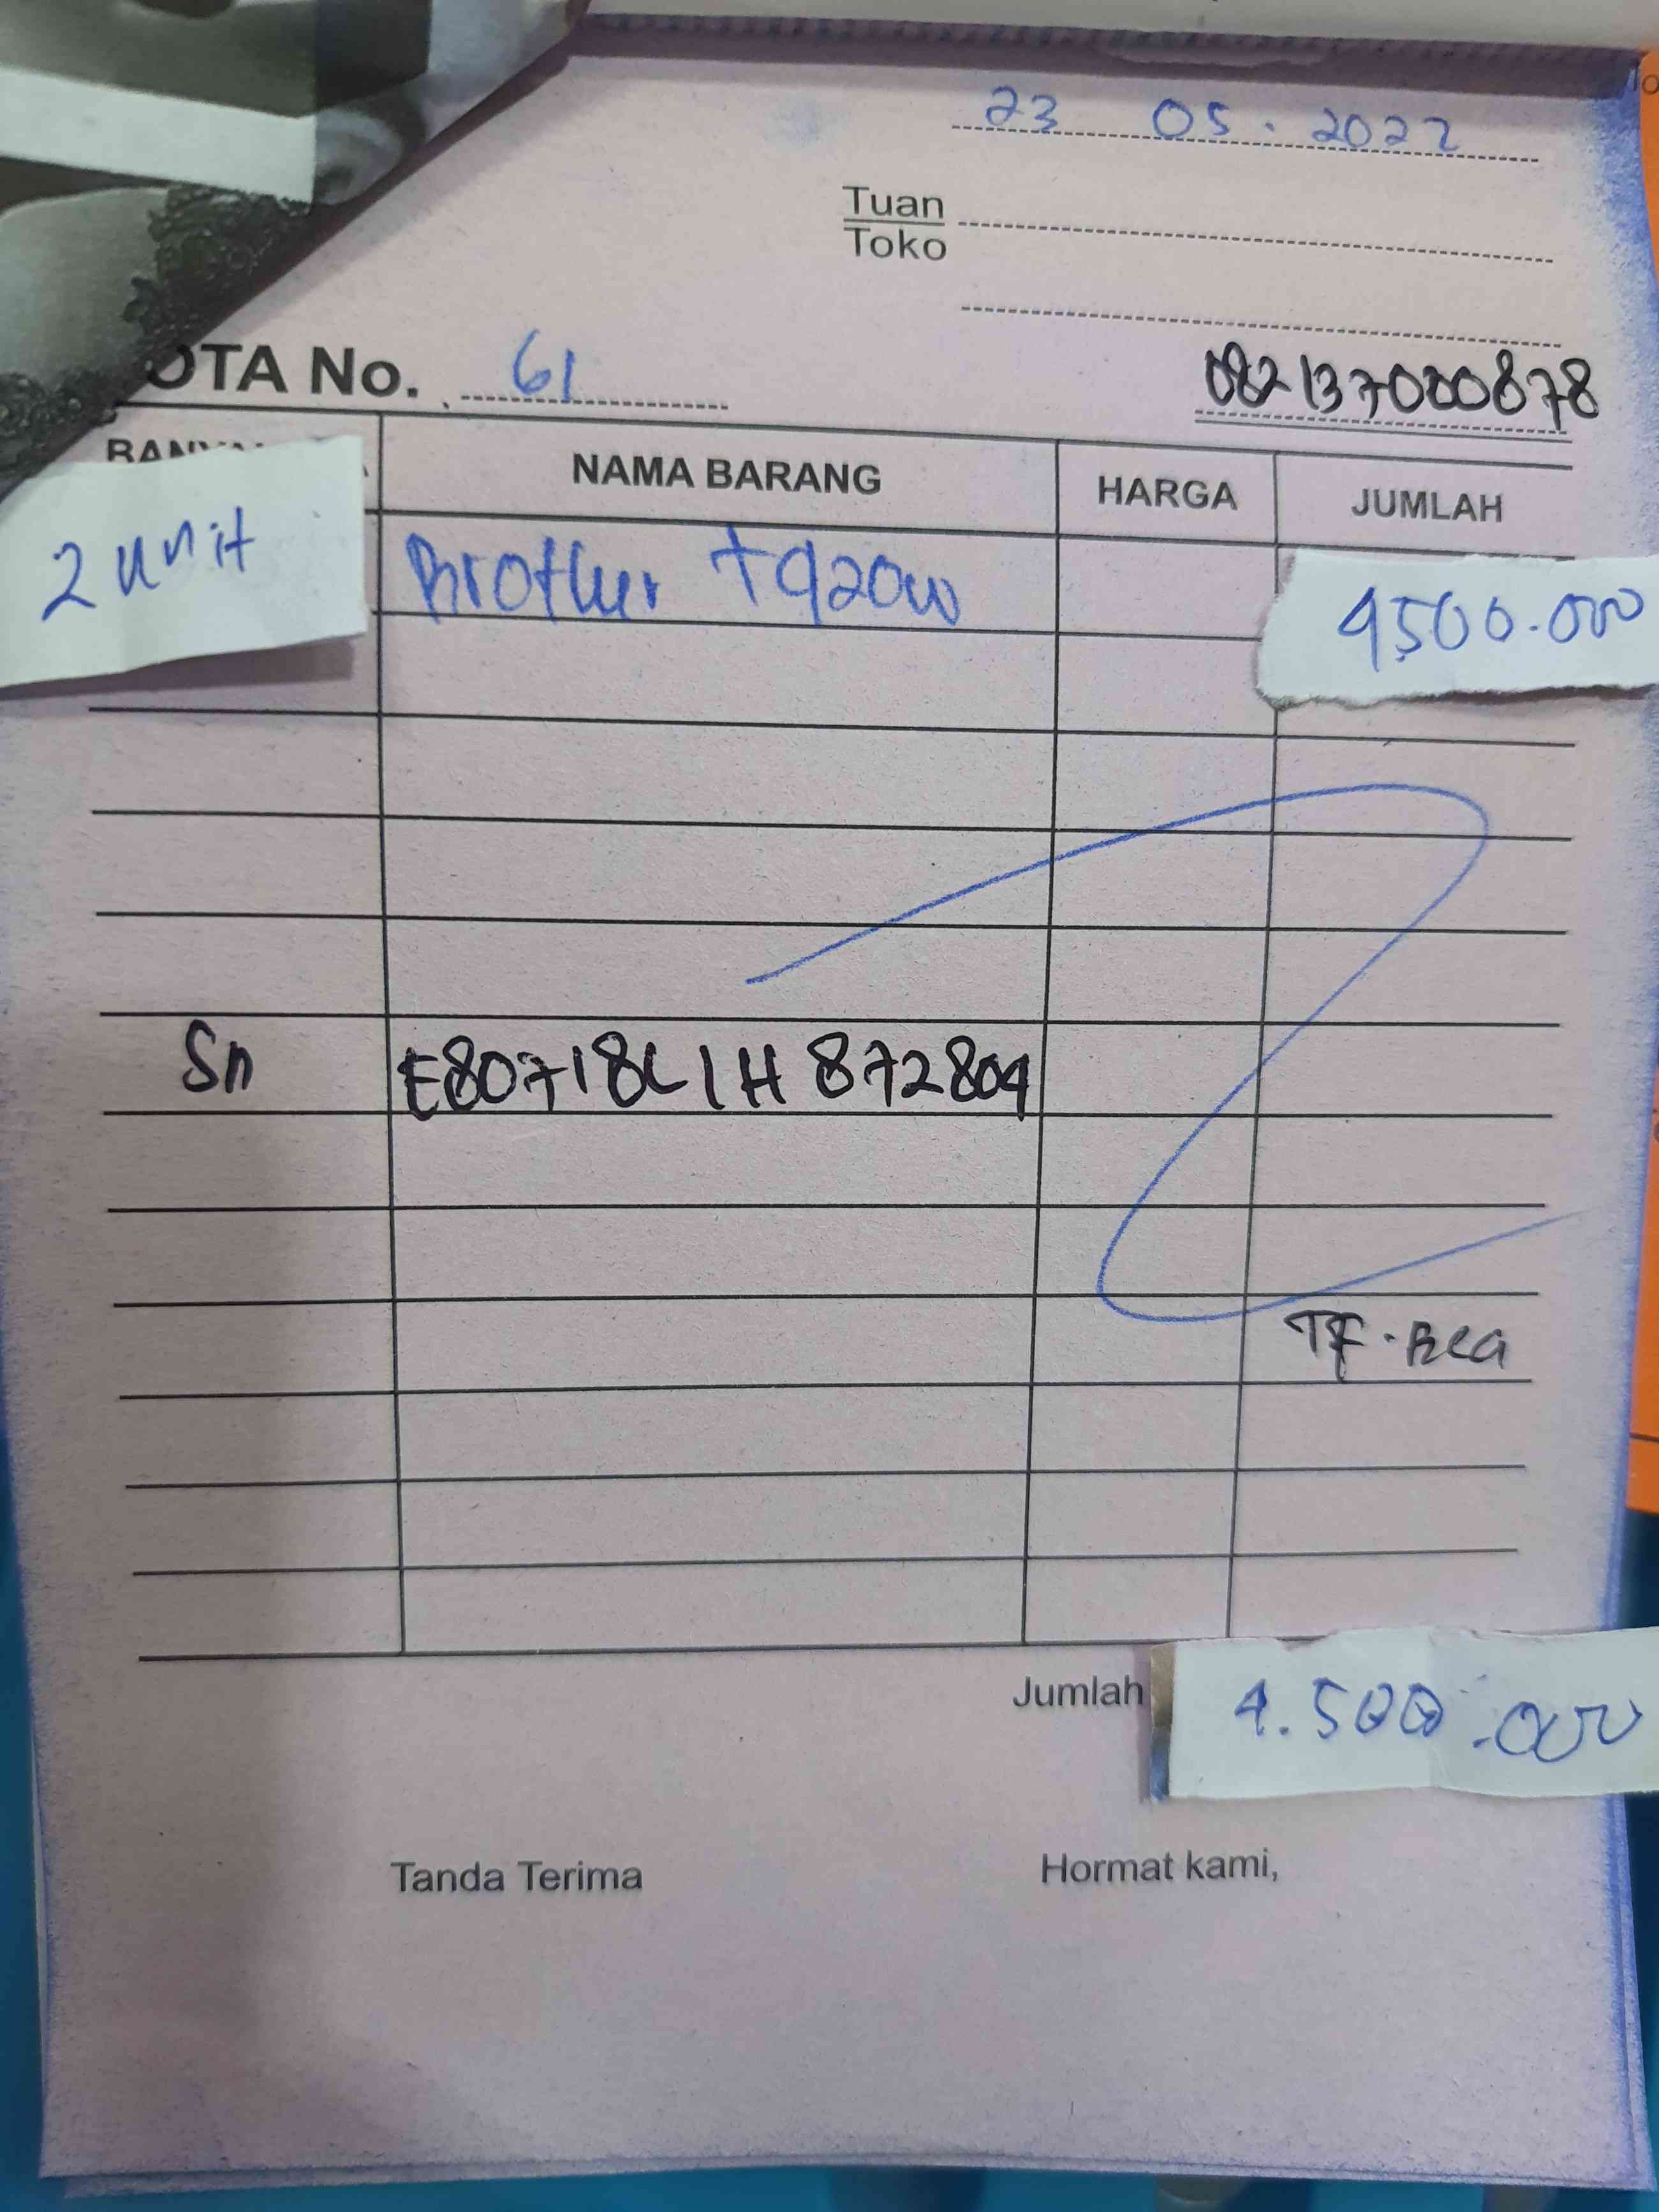 23 05. 2022
Tuan
Toko
OTA No. 61
082137000878
NAMA BARANG HARGA JUMLAH
2 unit Brother T920W 4500.000
Sn E80718L1H872804
TF. BCA
Jumlah 4.500.000
Tanda Terima Hormat kami,